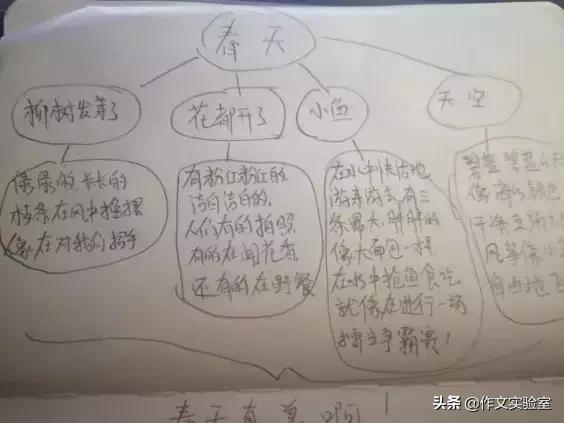 春天
柳树发芽了
花都开了
小鱼
天空
的,长长的
枝条在风中摇摆
像在对我们招手
有粉红粉红的
洁白洁白的,
人们有的拍照
有的在闻花香,
还有的在野餐
在水中快活地
游来游去,有三
条最大,胖胖的
像大面包一样
在水中抢鱼食吃
就像在进行一场
擂主争霸赛!
碧蓝碧蓝
像
干净
风筝像小
自由地飞
春天真美啊!
头条 @作文实验室